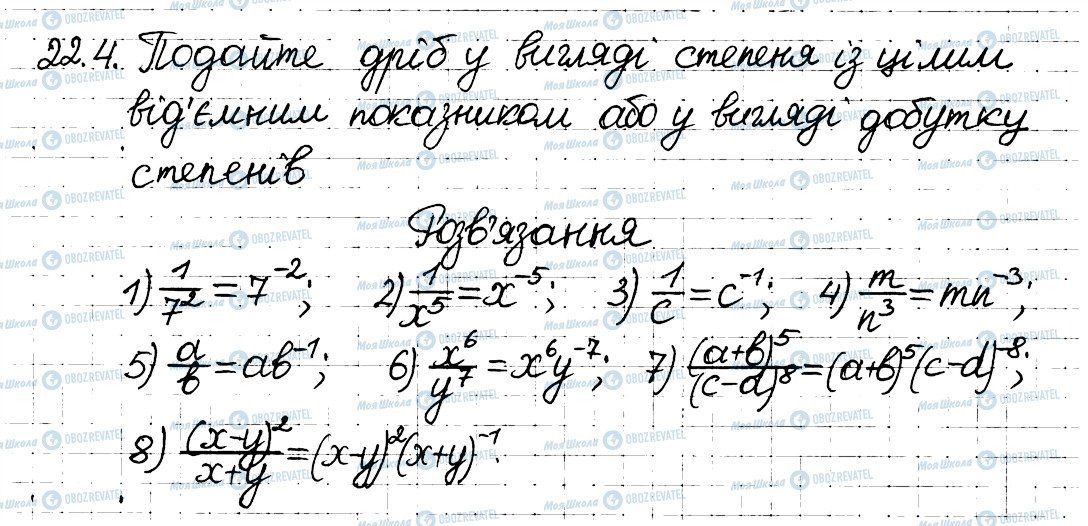 22.4. Подайте дріб у вигляді степеня із цілим
від'ємним показником або у вигляді добутку
степенів
Розв'язання
1) 1/7² = 7⁻²; 2) 1/x⁵ = x⁻⁵; 3) 1/c = c⁻¹; 4) m/n³ = mn⁻³;
5) a/b = ab⁻¹; 6) x⁶/y⁷ = x⁶y⁻⁷; 7) (a+b)⁵/(c-d)⁸ = (a+b)⁵(c-d)⁻⁸;
8) (x-y)²/x+y = (x-y)²(x+y)⁻¹.
МояШкола OBOZREVATEL